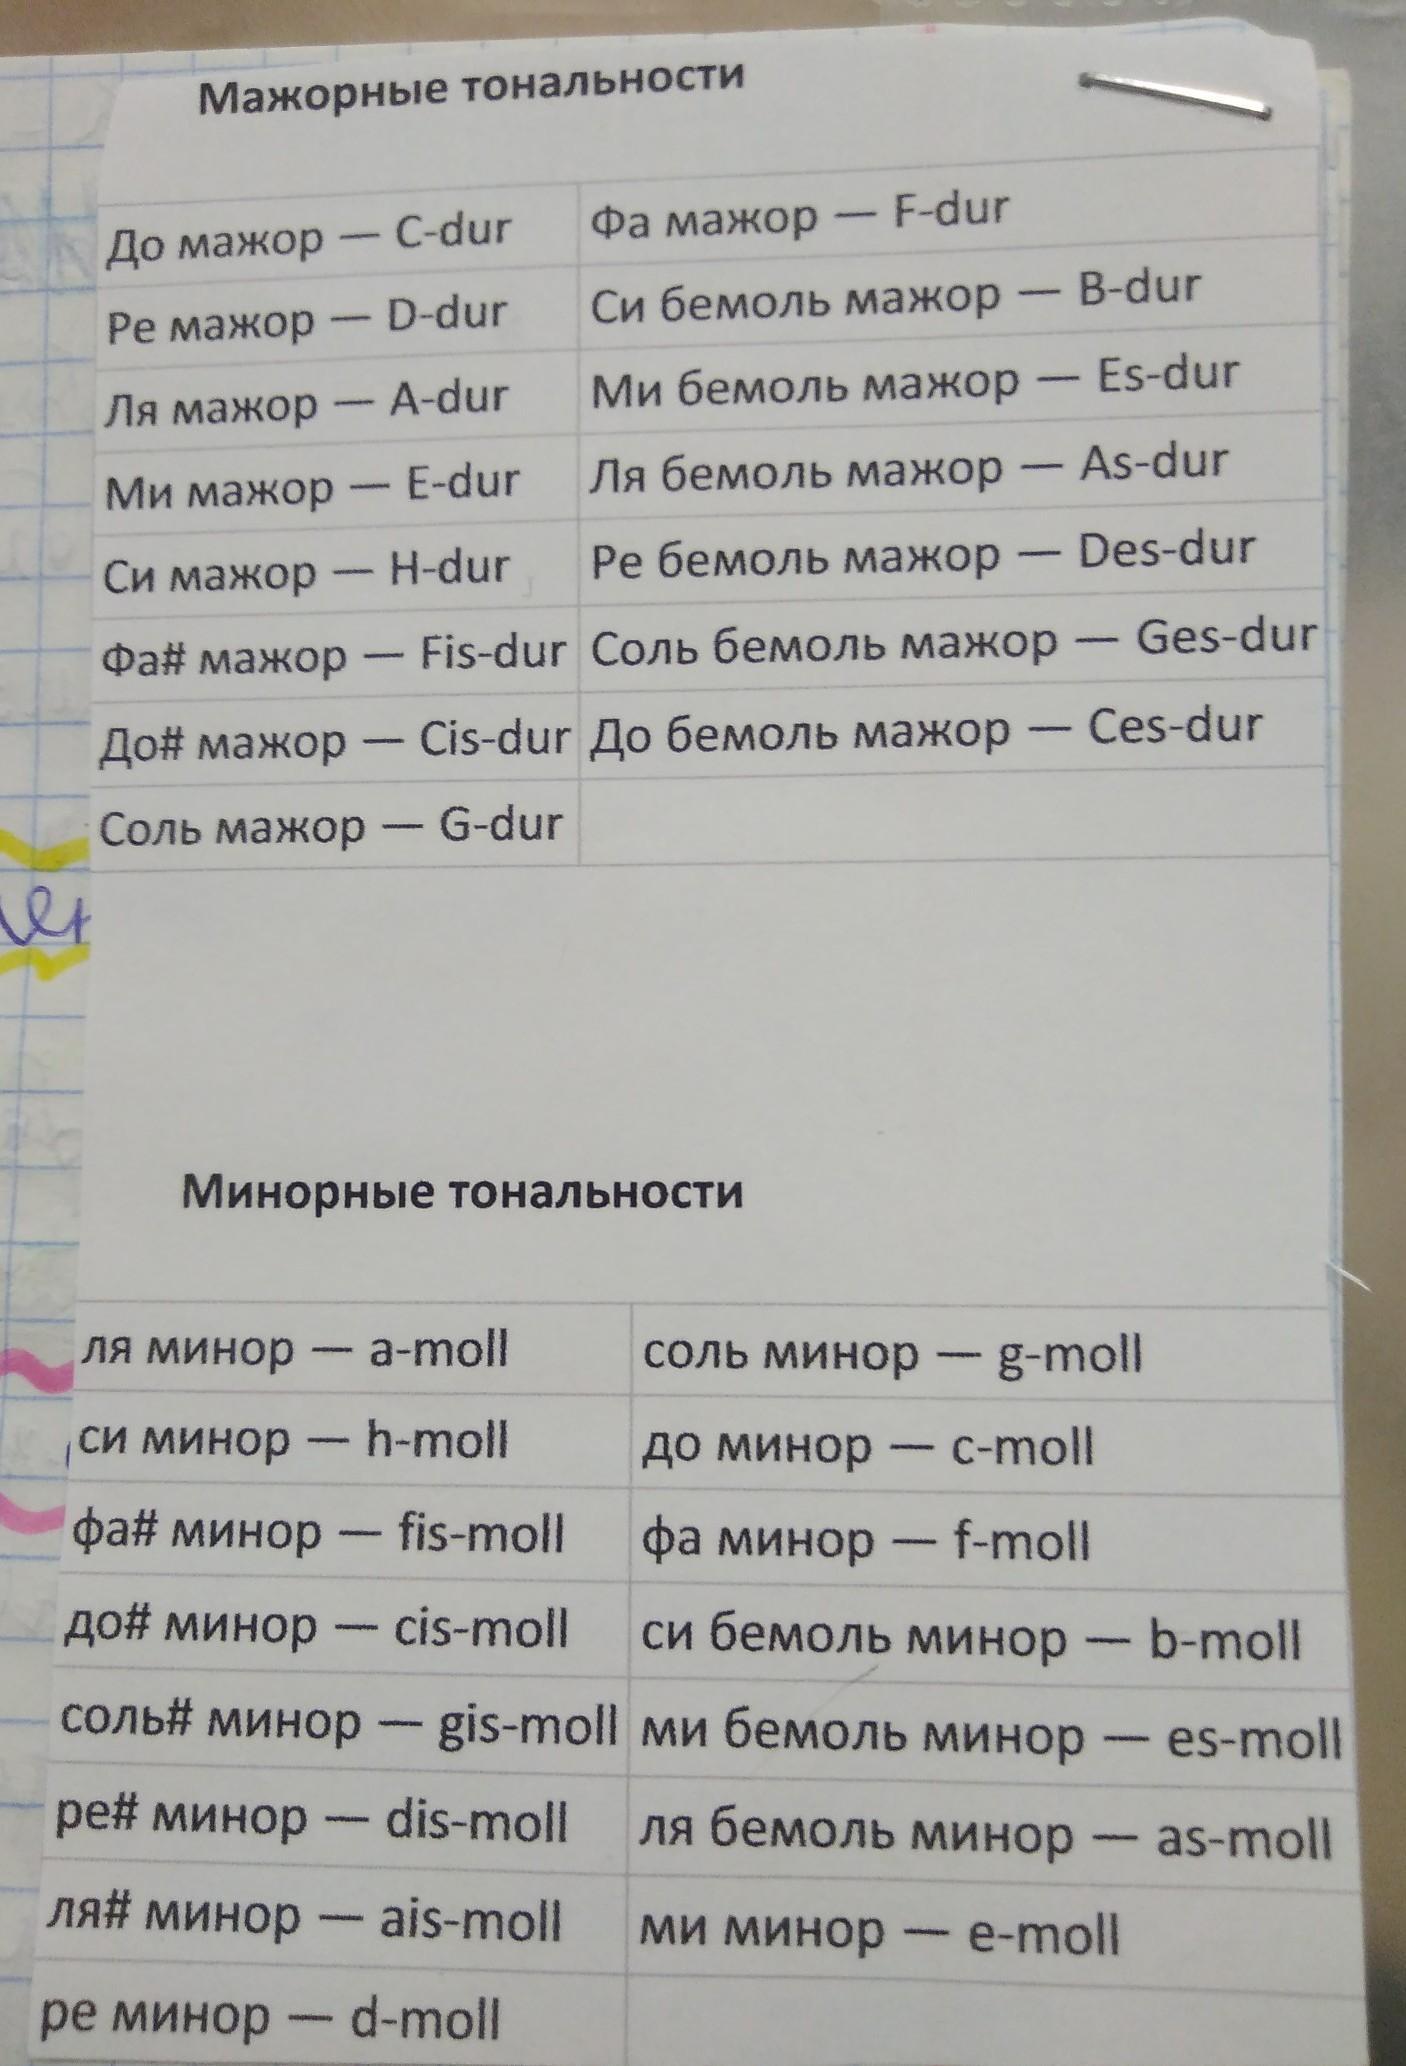 Мажорные тональности
До мажор — C-dur Фа мажор — F-dur
Ре мажор — D-dur Си бемоль мажор — B-dur
Ля мажор — A-dur Ми бемоль мажор — Es-dur
Ми мажор — E-dur Ля бемоль мажор — As-dur
Си мажор — H-dur Ре бемоль мажор — Des-dur
Фа# мажор — Fis-dur Соль бемоль мажор — Ges-dur
До# мажор — Cis-dur До бемоль мажор — Ces-dur
Соль мажор — G-dur
Минорные тональности
ля минор — a-moll соль минор — g-moll
си минор — h-moll до минор — c-moll
фа# минор — fis-moll фа минор — f-moll
до# минор — cis-moll си бемоль минор — b-moll
соль# минор — gis-moll ми бемоль минор — es-moll
ре# минор — dis-moll ля бемоль минор — as-moll
ля# минор — ais-moll ми минор — e-moll
ре минор — d-moll